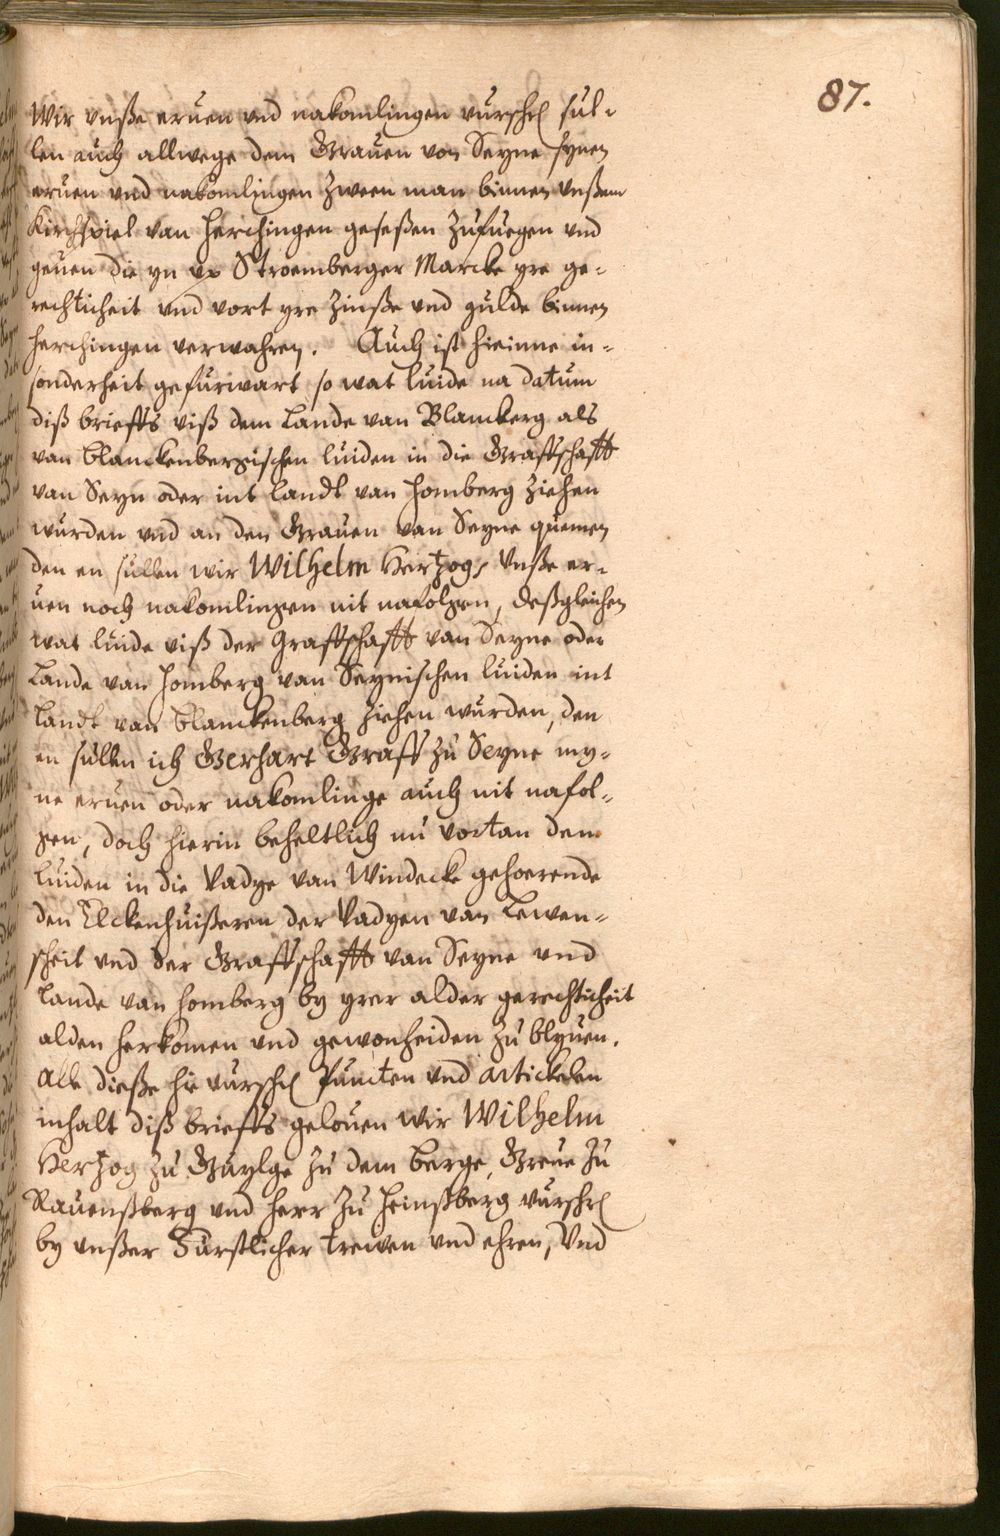 87.
Wir vnße eruen vnd nakomlingen vurschr sul-
len auch allwege dem Grauen von Seyne synen
eruen vnd nakomlingen zween man binnen vnßem
Kirchspiel van Herchingen geseßen zufuegen vnd
geuen die yn vp Stroemberger Marcke yre ge-
rechticheit vnd vort yre zinße vnd gulde binnen
Herchingen verwahren. Auch ist hieinne in-
sonderheit gefurwart so wat luide na datum
diß brieffs viß dem Lande van Blanckerg als
van Blanckenbergischen luiden in die Graffschafft
van Seyn oder int Landt van Homberg ziehen
wurden vnd an den Grauen van Seyne quemen
den en sullen wir Wilhelm Hertzog, vnße er-
uen noch nakomlingen nit nafolgen, deßgleichen
wat luide viß der Graffschafft van Seyne oder
Lande van Homberg van Seynischen luiden int
Landt van Blanckenberg ziehen wurden, den
en sullen ich Gerhart Graff zu Seyne my-
ne eruen oder nakomlinge auch nit nafol-
gen, doch hierin beheltlich nu vortan dem
luiden in die Vadye van Windecke gehoerende
den Eckenhuißeren der Vadyen van Lewen-
scheit vnd der Graffschafft van Seyne vnd
Lande van Homberg by yrer alder gerechticheit
alden herkomen vnd gewonheiden zu blyuen.
Alle dieße hie vurschr Puncten vnd artickelen
inhalt diß brieffs gelouen wir Wilhelm
Hertzog zu Guylge zu dem Berge, Greue zu
Rauenßberg vnd Herr zu Heinßberg vurschr
by vnßer Furstlicher trewen vnd ehren, Vnd